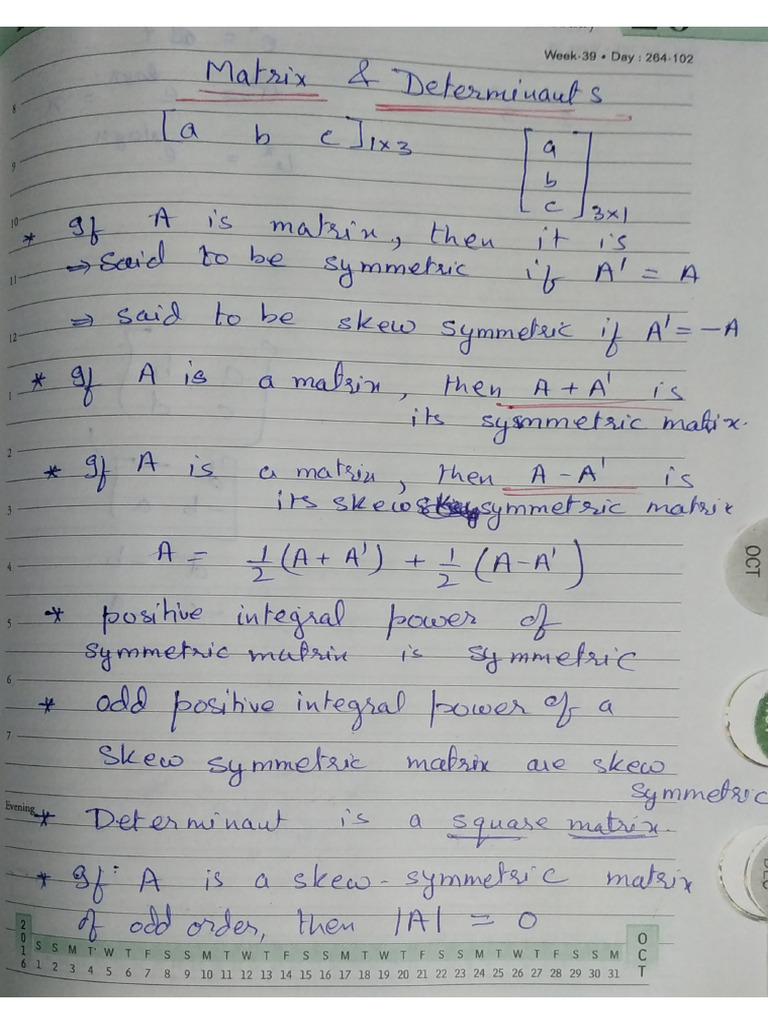 Week-39 • Day : 264-102
Matrix & Determinants
8
[a b c]1×3
[a
b
c]3×1
9
10
* If A is matrix, then it is
11
⇒ said to be symmetric if A' = A
12
⇒ said to be skew symmetric if A' = -A
1
* If A is a matrix, then A + A' is
its symmetric matrix.
2
* If A is a matrix, then A - A' is
3
its skew symmetric matrix
4
A = 1/2 (A + A') + 1/2 (A - A')
OCT
5
* positive integral power of
symmetric matrix is symmetric
6
* odd positive integral power of a
7
skew symmetric matrix are skew
symmetric
Evening
* Determinant is a square matrix.
* If A is a skew-symmetric matrix
of odd order, then |A| = 0
2016
S S M T W T F S S M T W T F S S M T W T F S S M T W T F S S M
1 2 3 4 5 6 7 8 9 10 11 12 13 14 15 16 17 18 19 20 21 22 23 24 25 26 27 28 29 30 31
OCT